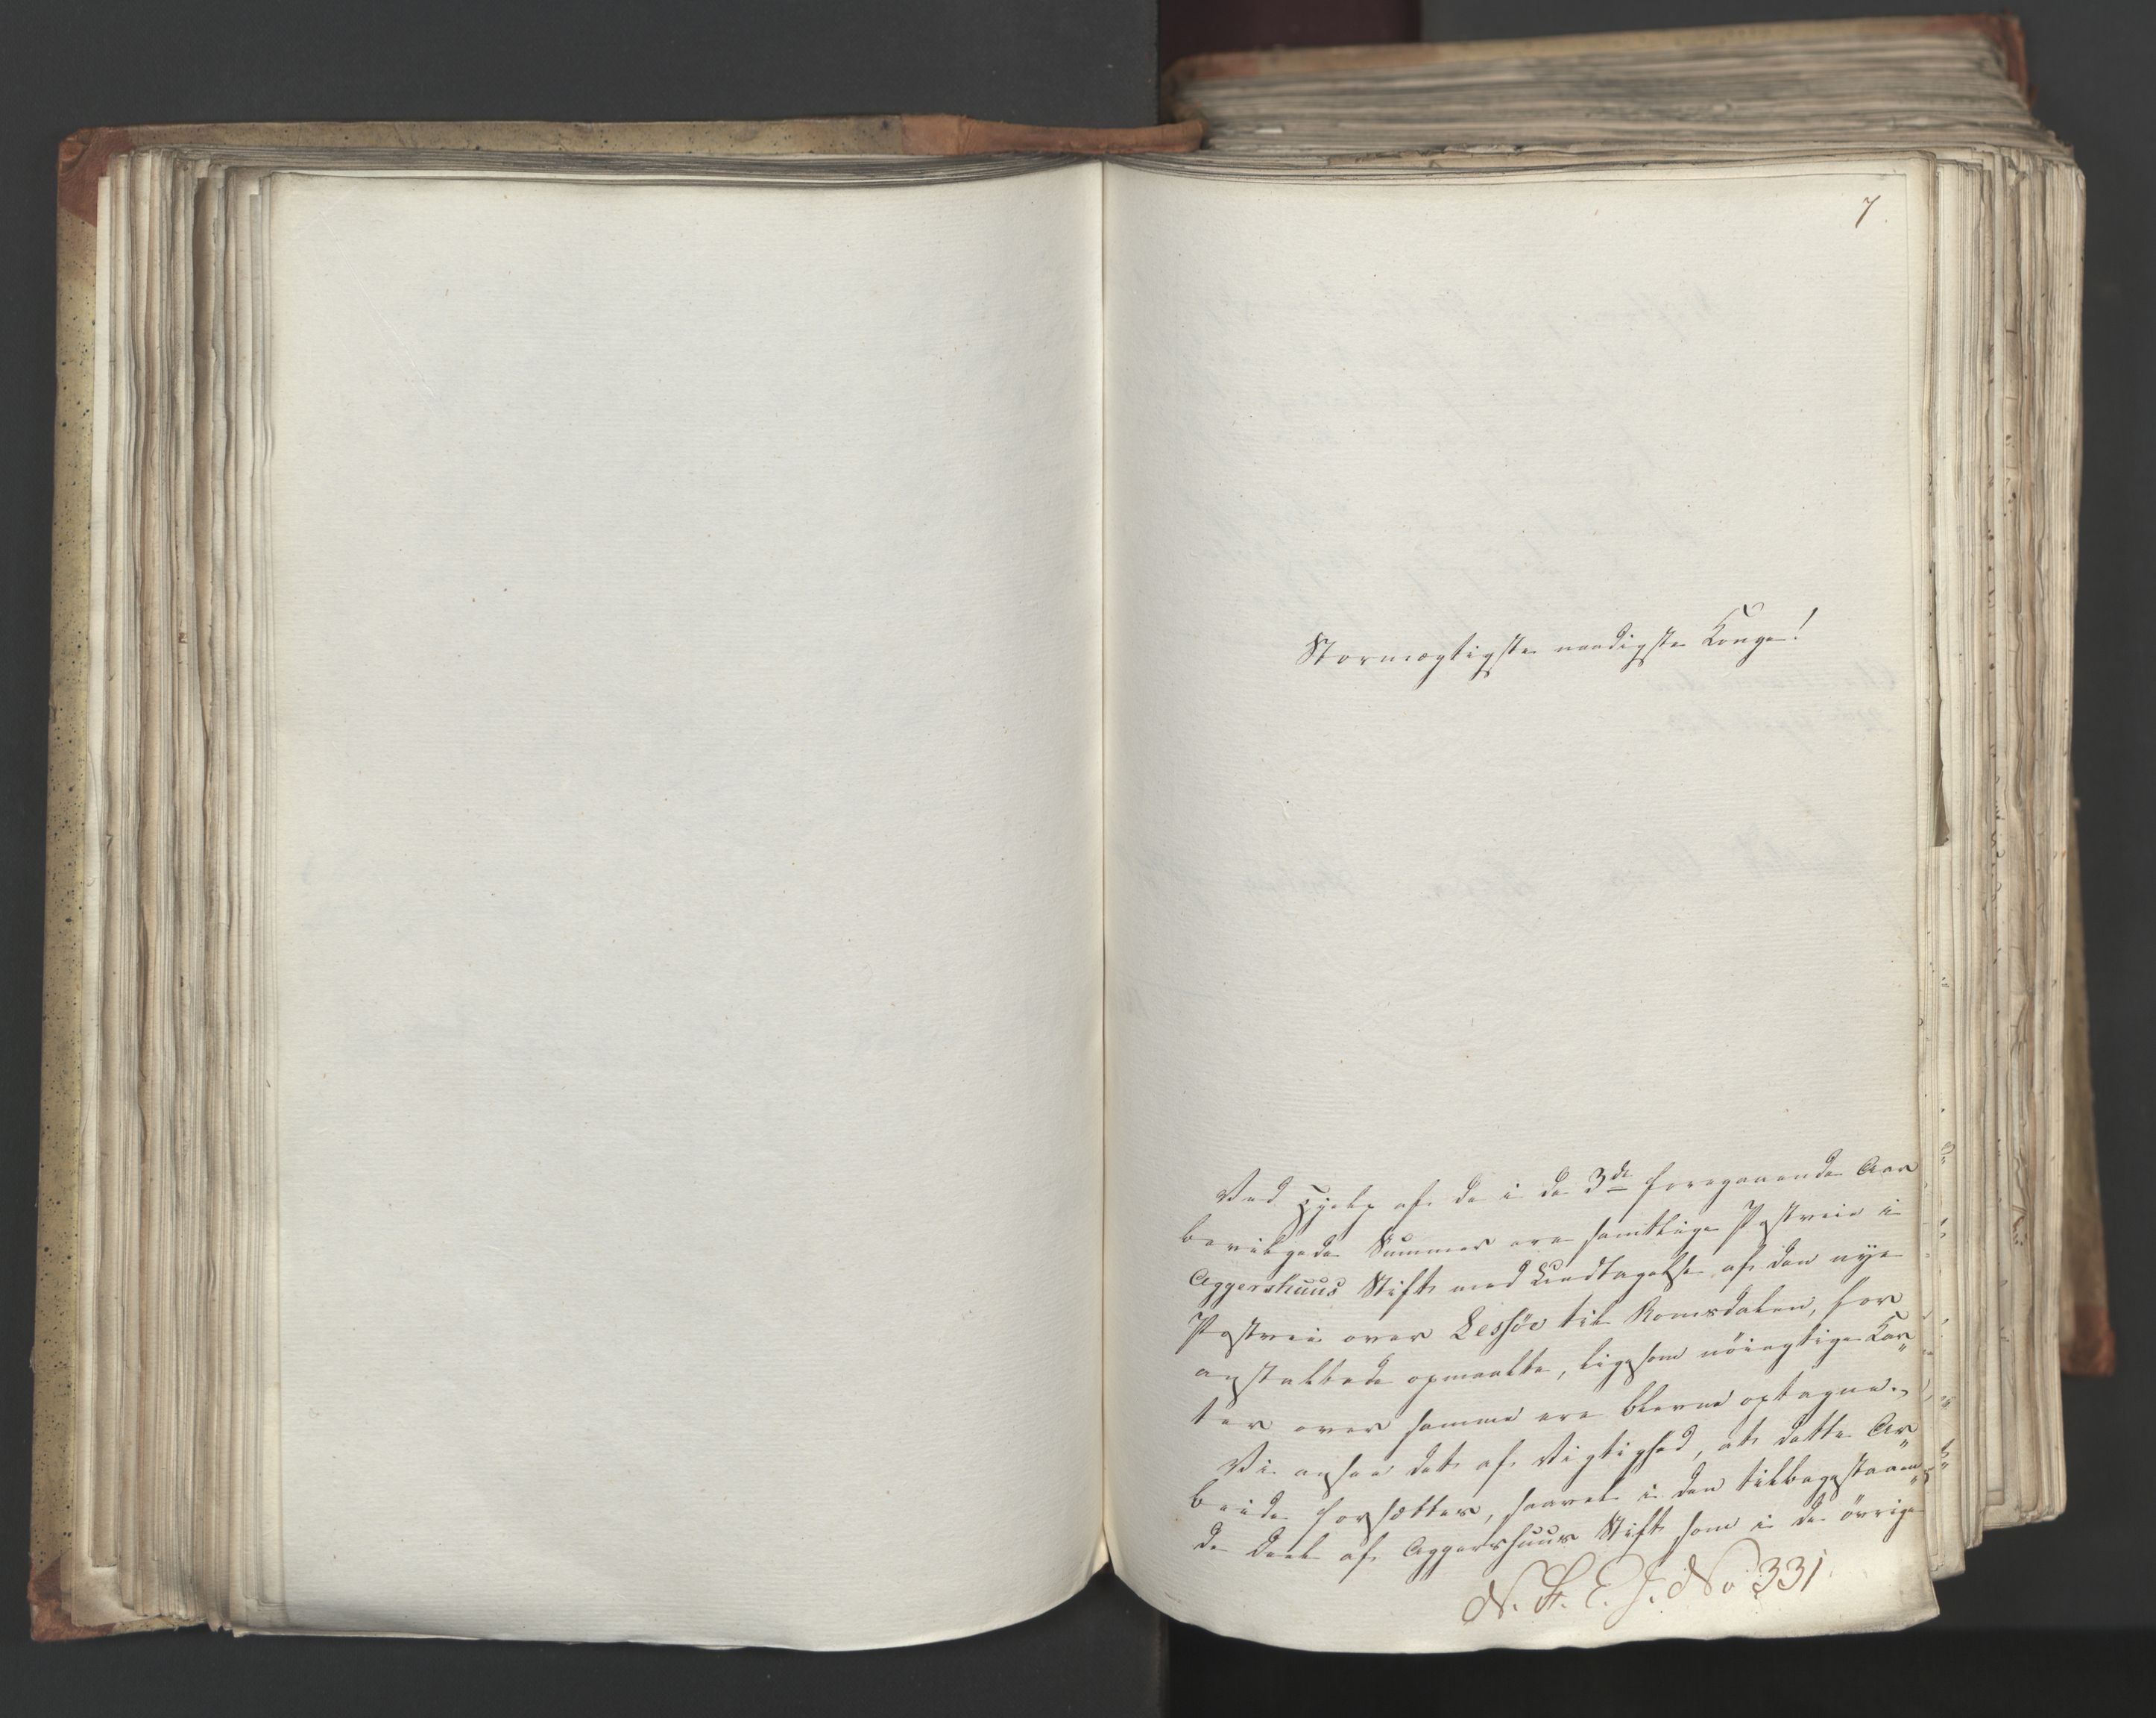 7.
Stormægtigste naadigste Konge!
Ved Hjelp af de i de 3de foregaaende Aar
bevilgede Summer ere samtlige Postveie i
Aggershuus Stift med Undtagelse af den nye
Postvei over Lessöe til Romsdalen, for
anstaltede opmaalte, ligesom nöiagtige Kar„
ter over samme ere blevne optagne.
Vi ansee det af Vigtighed, at dette Ar„
beide forsættes, saavel i den tilbagestaaen„
de Deel af Aggershuus Stift som i de övrige
N. F. E. J. No 331